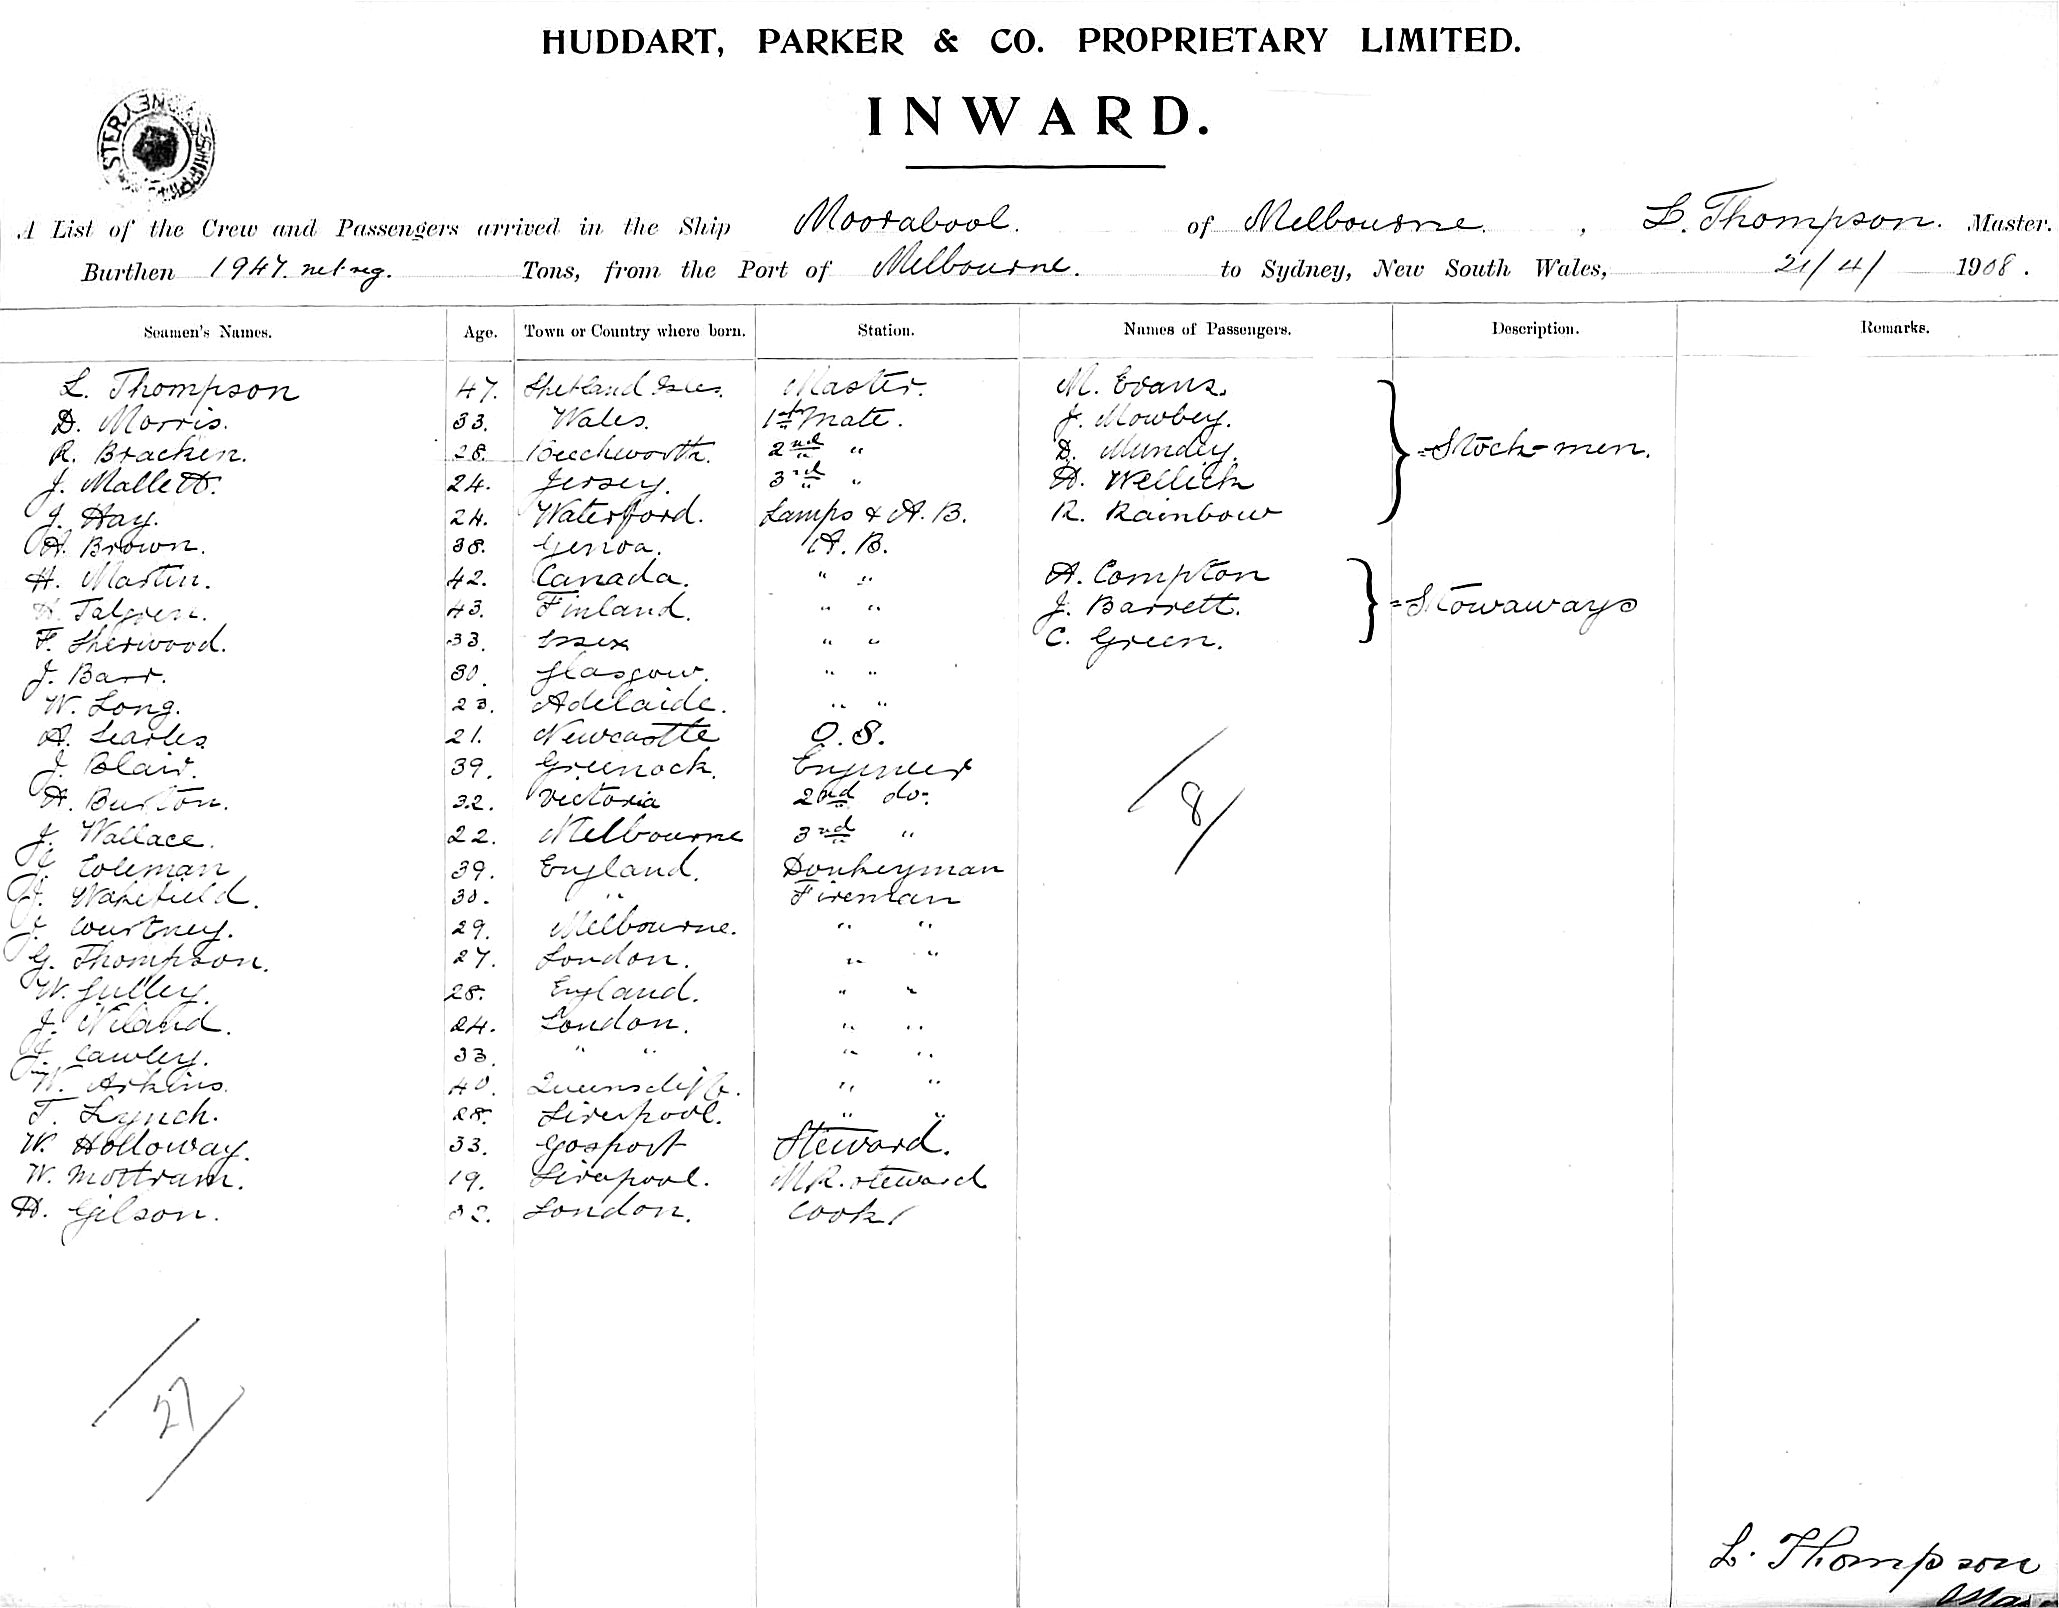 HUDDART, PARKER & CO. PROPRIETARY LIMITED.
INWARD.
A List of the Crew and Passengers arrived in the Ship Moorabool. of Melbourne. , L. Thompson. Master.
Burthen 1947. net reg. Tons, from the Port of Melbourne. to Sydney, New South Wales, 21/4/ 1908.
Seamen's Names. Age. Town or Country where born. Station. Names of Passengers. Description. Remarks.
L. Thompson 47. Shetland Isles. Master. M. Evans.
D. Morris. 33. Wales. 1st Mate. J. Mowbey.
R. Bracken. 28. Beechworth. 2nd " D. Mundey. Stock-men.
J. Mallett. 24. Jersey. 3rd " H. Wellick
J. Hay. 24. Waterford. Lamps & A.B. R. Rainbow
A. Brown. 38. Genoa. A.B.
H. Martin. 42. Canada. " " A. Compton
H. Talgren. 43. Finland. " " J. Barrett. Stowaways
F. Sherwood. 33. Essex " " C. Green.
J. Barr. 30. Glasgow. " "
W. Long. 23. Adelaide. " "
A. Searles 21. Newcastle O.S.
J. Blair. 39. Greenock. Engineer
A. Burton. 32. Victoria 2nd do.
J. Wallace. 22. Melbourne 3rd " 8
J. Coleman 39. England. Donkeyman
J. Wakefield. 30. " Fireman
J. Courtney. 29. Melbourne. " "
G. Thompson. 27. London. " "
W. Gulley. 28. England. " "
J. Niland. 24. London. " "
J. Cawley. 33. " " " "
W. Arkins. 40. Queenscliffe. " "
T. Lynch. 28. Liverpool. " "
W. Holloway. 33. Gosport Steward.
W. Mottram. 19. Liverpool. M.R. Steward
H. Gilson. 32. London. Cook
27
L. Thompson